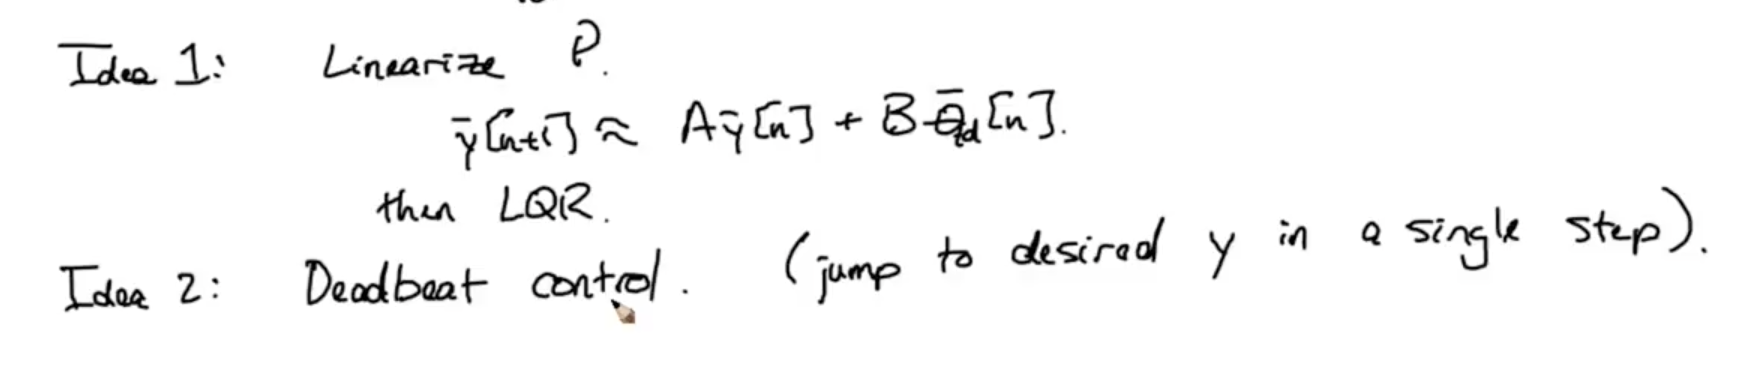 Idea 1: Linearize P.
ȳ[n+1] ≈ Aȳ[n] + Bθ̄_td[n].
then LQR.
Idea 2: Deadbeat control. (jump to desired y in a single step).